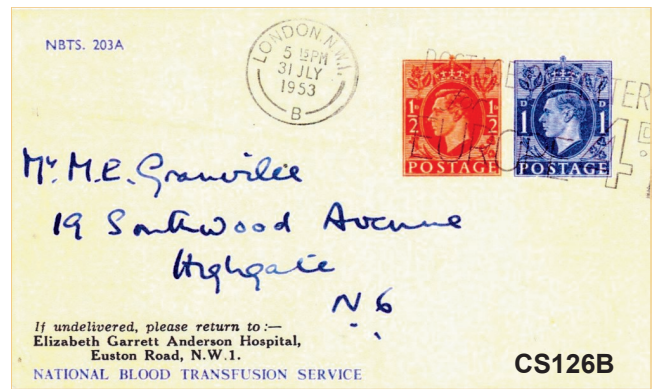 NBTS. 203A
LONDON. N.W.1.
5 15 PM
31 JLY
1953
B
POSTAGE
4D.
1/2 D 1/2
POSTAGE
1 D D 1
POSTAGE
Mr. M.E. Granville
19 Southwood Avenue
Highgate
N 6
If undelivered, please return to :—
Elizabeth Garrett Anderson Hospital,
Euston Road, N.W.1.
NATIONAL BLOOD TRANSFUSION SERVICE
CS126B